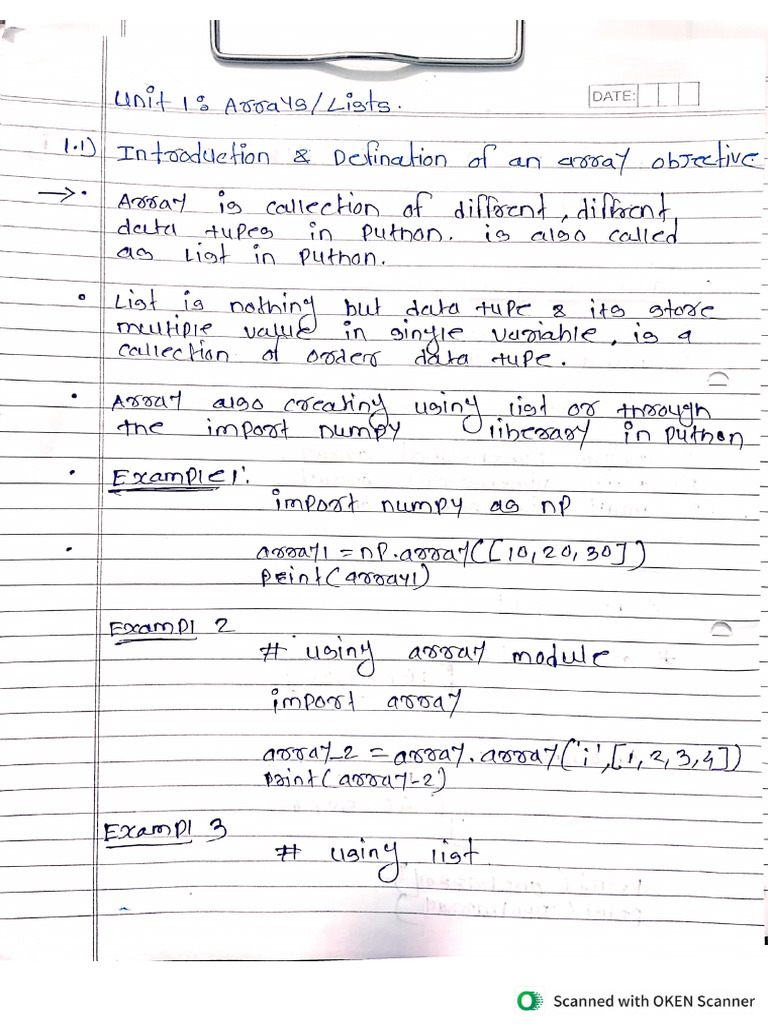 Unit 1: Arrays/Lists.
DATE:
1.1) Introduction & Defination of an array objective
→ • Array is collection of different, different
data types in python. is also called
as List in python.
• List is nothing but data type & its store
multiple value in single variable, is a
collection of order data type.
• Array also creating using list or through
the import numpy liberary in python
• Example 1:
import numpy as np
• array1 = np.array([10,20,30])
print(array1)
Exampl 2
# using array module
import array
array_2 = array.array('i',[1,2,3,4])
print(array-2)
Exampl 3
# using list
Scanned with OKEN Scanner